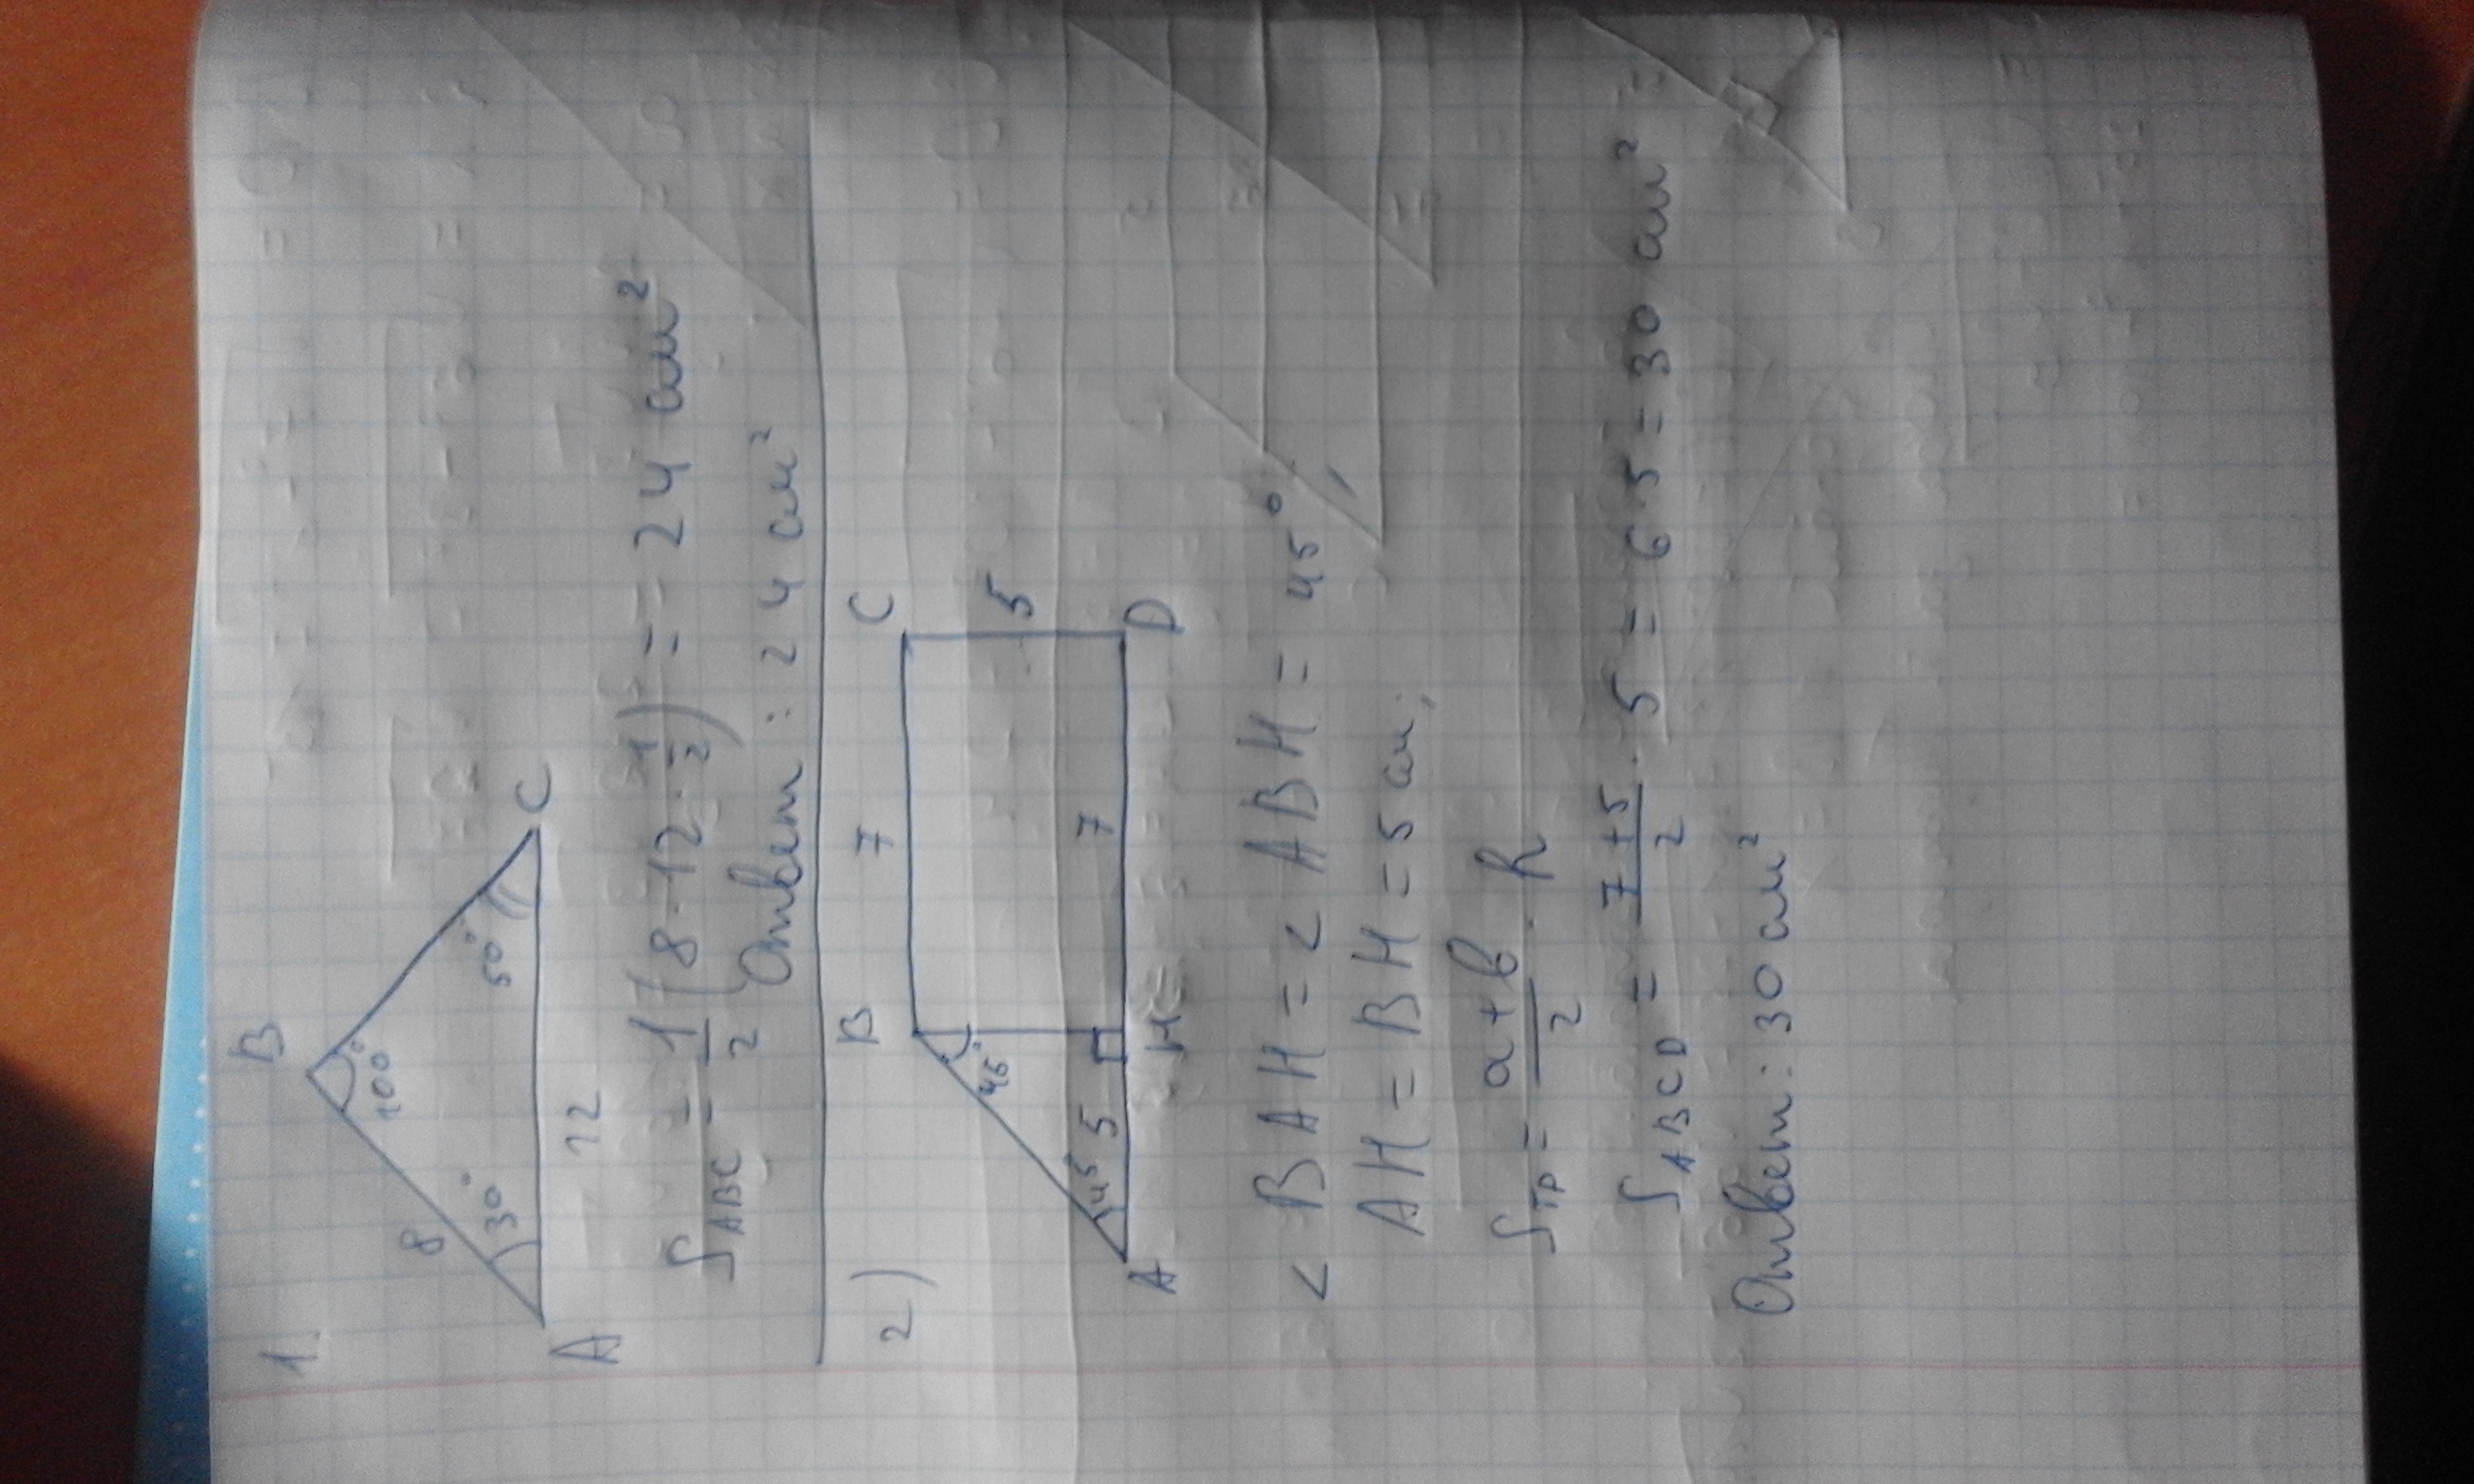 1.
B
100°
8
30°
50°
A
C
12
S ABC = 1/2 (8 · 12 · 1/2) = = 24 см²
Ответ: 24 см²
2)
B
7
C
45°
5
45°
5
7
A
H
D
∠ BAH = ∠ ABH = 45°,
AH = BH = 5 см;
S тр = a + b / 2 · h
S ABCD = 7 + 5 / 2 · 5 = 6 · 5 = 30 см²
Ответ: 30 см²